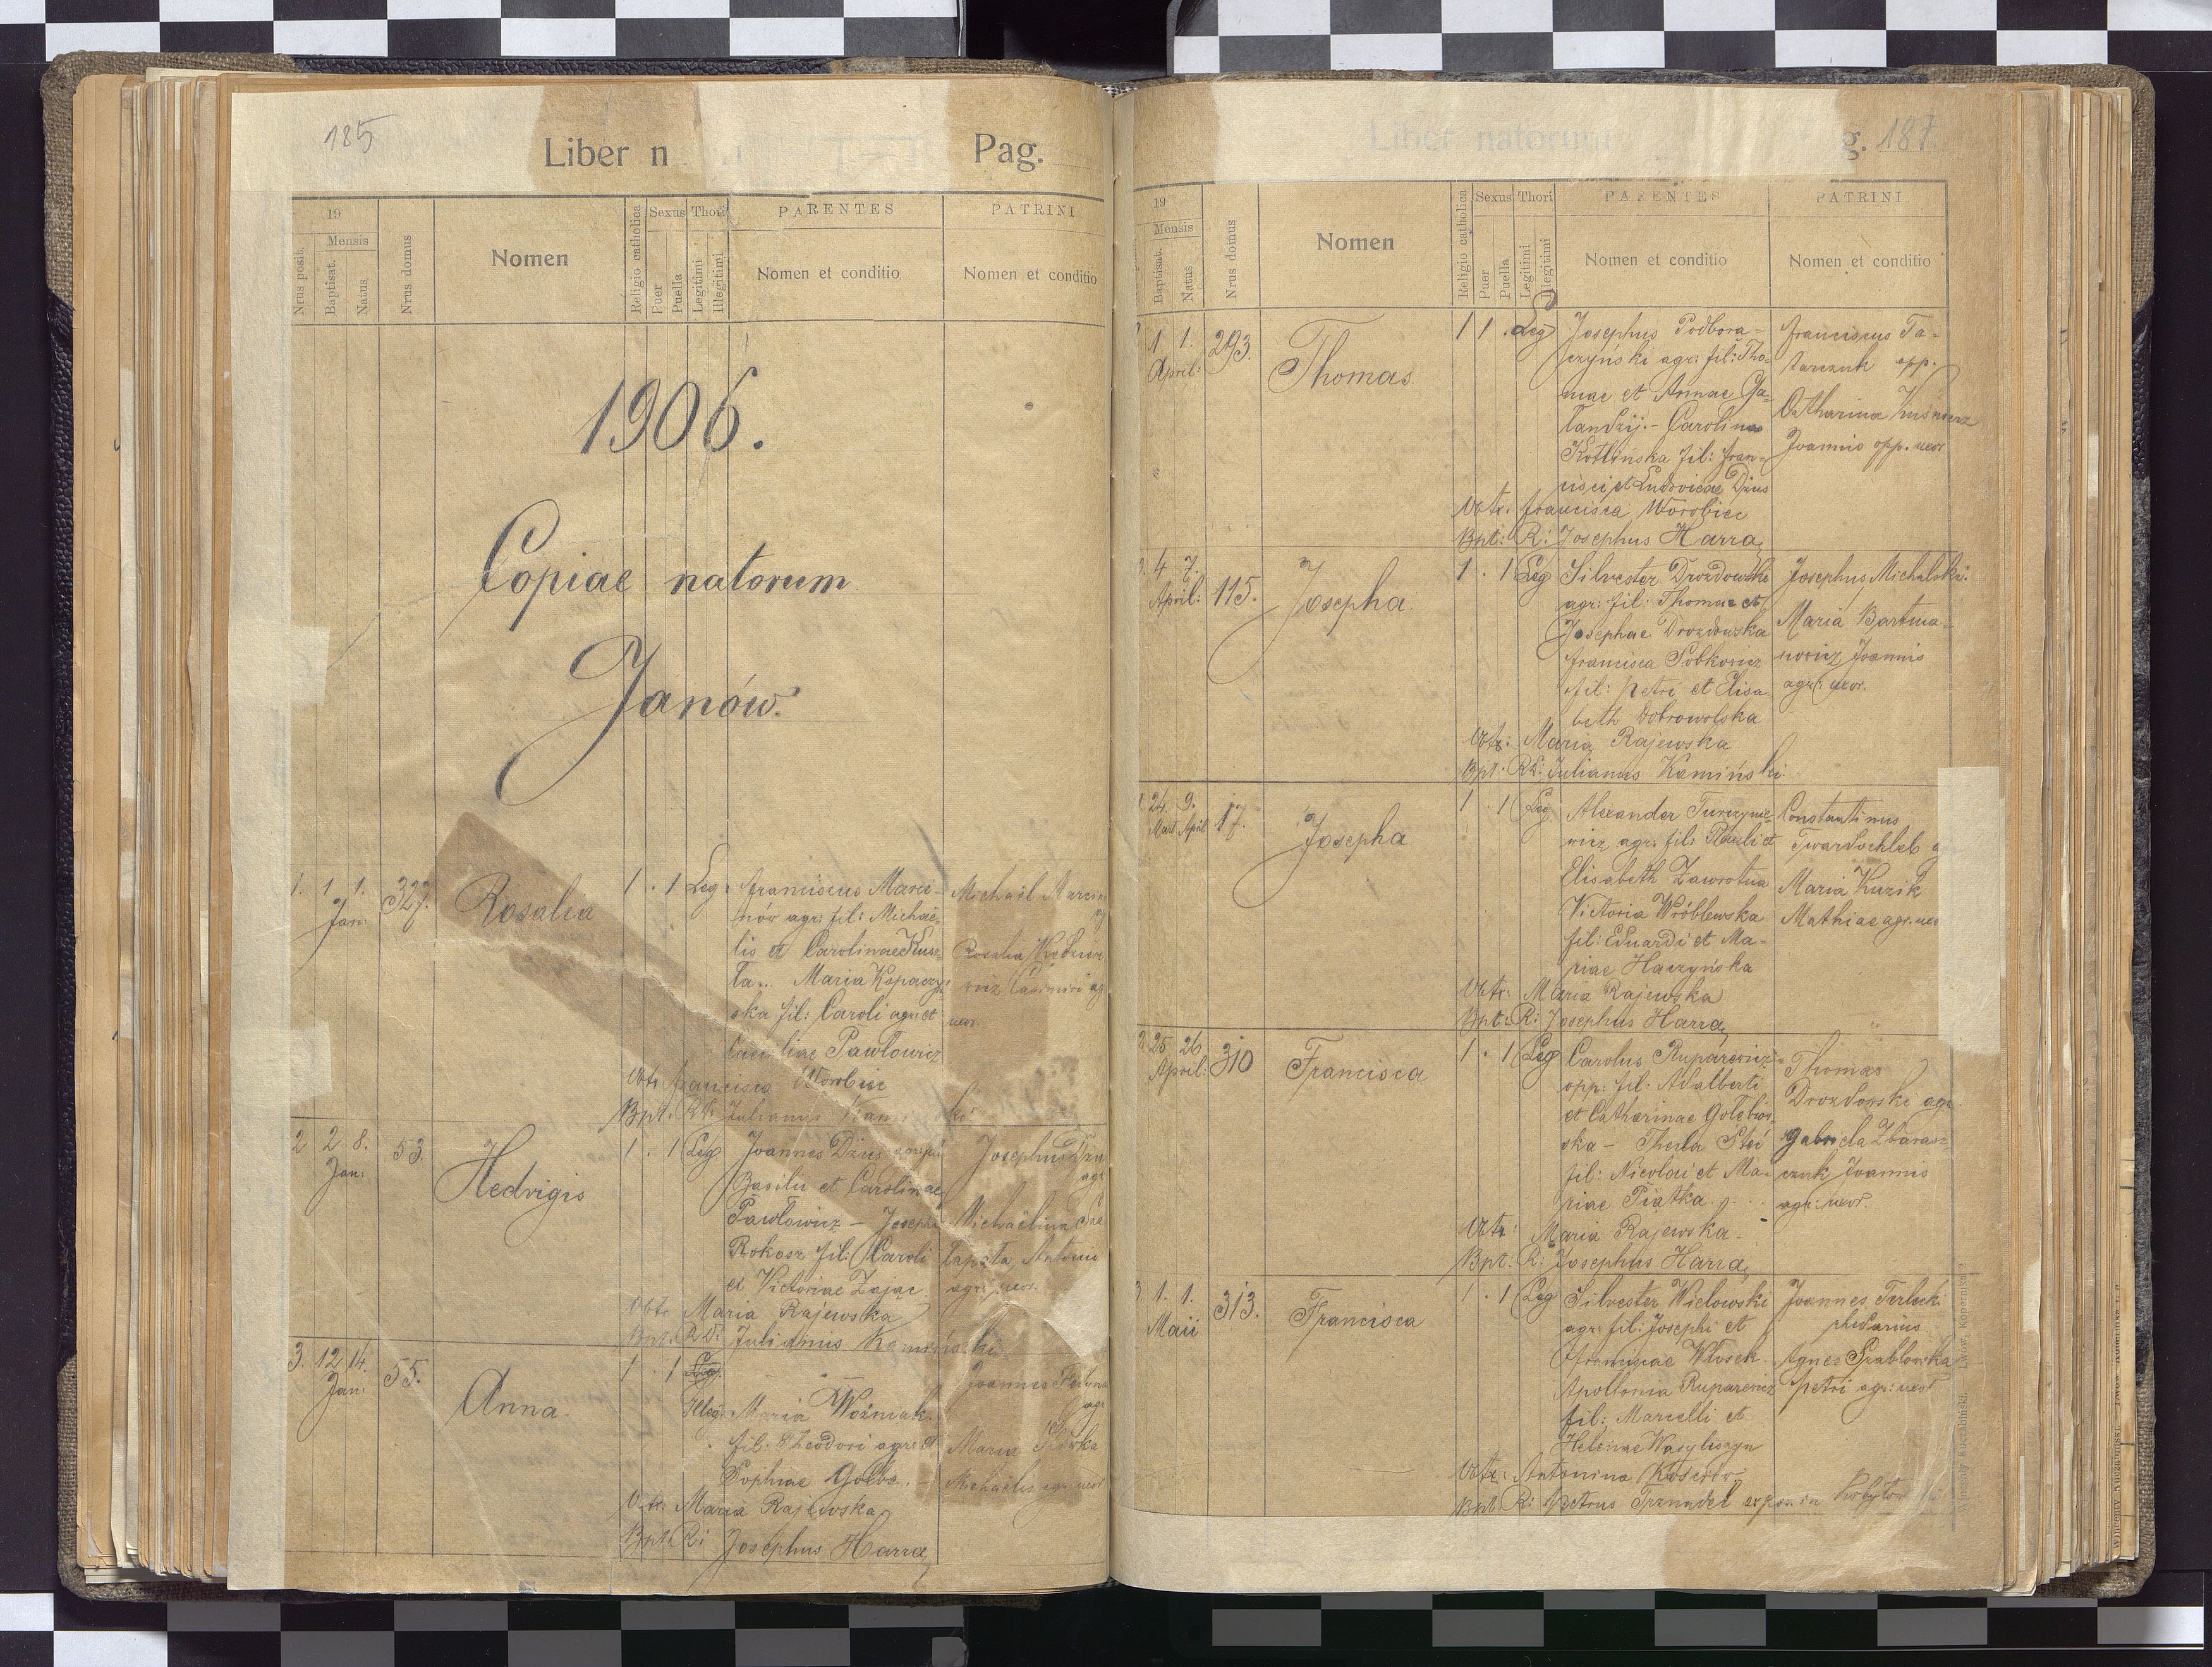 185
Liber n
Pag.
19
Mensis
Nrus posit.
Baptisat.
Natus
Nrus domus
Nomen
Religio catholica
Sexus
Puer
Puella
Thori
Legitimi
Illegitimi
PARENTES
Nomen et conditio
PATRINI
Nomen et conditio
1906.
Copiae natorum
Janów.
1. 1 1. Jan: 327. Rosalia 1 . 1 Leg.
Franciscus Marci-
nów agr: fil: Michae-
lis et Carolinae Kusz-
ła... Maria Kopaczyń
ska fil: Caroli agr: et
Caeciliae Pawłowicz
Michaël Marcin
Rosalia
wicz Casimiri ag
uxor.
Obtr. Francisca Worobiec
Bpt. RD: Julianus Kamiński
2 2 8. Jan: 53. Hedvigis 1 . 1 Leg
Joannes Dzius
Basilii et Carolinae
Pawłowicz – Josepha
Rokosz fil: Caroli
et Victoriae Zając.
Josephus
agr
Michaëlina
Łapsta, Antonii
agr: uxor.
Obtr. Maria Rajewska
Bpt. RD: Julianus Kamiński
3. 12 14. Jan: 55. Anna 1 . 1 Leg.
Illeg: Maria Woźniak.
fil: Theodori agr: et
Sophiae Gołba. –
Joannes
agr
Maria
Michaëlis agr. uxor
Obtr. Maria Rajewska
Bpt. R: Josephus Harra
Liber natorum
g. 187.
19
Mensis
Baptisat.
Natus
Nrus domus
Nomen
Religio catholica
Sexus
Puer
Puella
Thori
Legitimi
Illegitimi
PARENTES
Nomen et conditio
PATRINI
Nomen et conditio
1. 1. April: 293. Thomas 1 1 . Leg
Josephus Podbora-
czyński agr: fil: Tho-
mae et Annae Ga-
landzij. – Carolina
Kotlińska fil: Fran-
cisci et Ludovicae Dzius
Franciscus Ta-
tarczuk opp.
Catharina Kuśnierz
Joannis opp. uxor
Obtr. Francisca Worobiec
Bpt: R: Josephus Harra
4 7. April: 115. Josepha 1 . 1 Leg
Silvester Drozdowski
agr: fil: Thomae et
Josephae Drozdowska
Francisca Sobkowicz
fil: Petri et Elisa
beth Dobrowolska
Josephus Michalski.
Maria Bartma-
nowicz Joannis
agr: uxor.
Obtr: Maria Rajewska
Bpt. RD: Julianus Kamiński
24 9. Mart. April 17. Josepha 1 . 1 Leg
Alexander Turczynie-
wicz agr: fil: Pauli et
Elisabeth Zawrotna
Victoria Wróblewska
fil: Eduardi et Ma-
riae Haczyńska
Constantinus
Twardochleb a
Maria Kuzik
Mathiae agr. uxor
Obtr: Maria Rajewska
Bpt: R: Josephus Harra
25 26 April: 310 Francisca 1 . 1 Leg
Carolus Ruparewicz
opp: fil: Adalberti
et Catharinae Gołębiow
ska – Thecla Steć
fil: Nicolai et Ma-
riae Piątka
Thomas
Drozdowski agr.
Gabriela Zbarasz
czuk Joannis
agr: uxor.
Obtr: Maria Rajewska
Bpt: R: Josephus Harra
1. 1. Maii 313. Francisca 1 . 1 Leg
Silvester Wielowski
agr: fil: Josephi et
Franciscae Włosek
Apollonia Ruparewicz
fil: Marcelli et
Helenae Wasyliszyn
Joannes Terlecki
Agnes Srablowska
Petri agr: uxor
Obtr: Antonina
Bpt: R: Petrus Trznadel expos. in